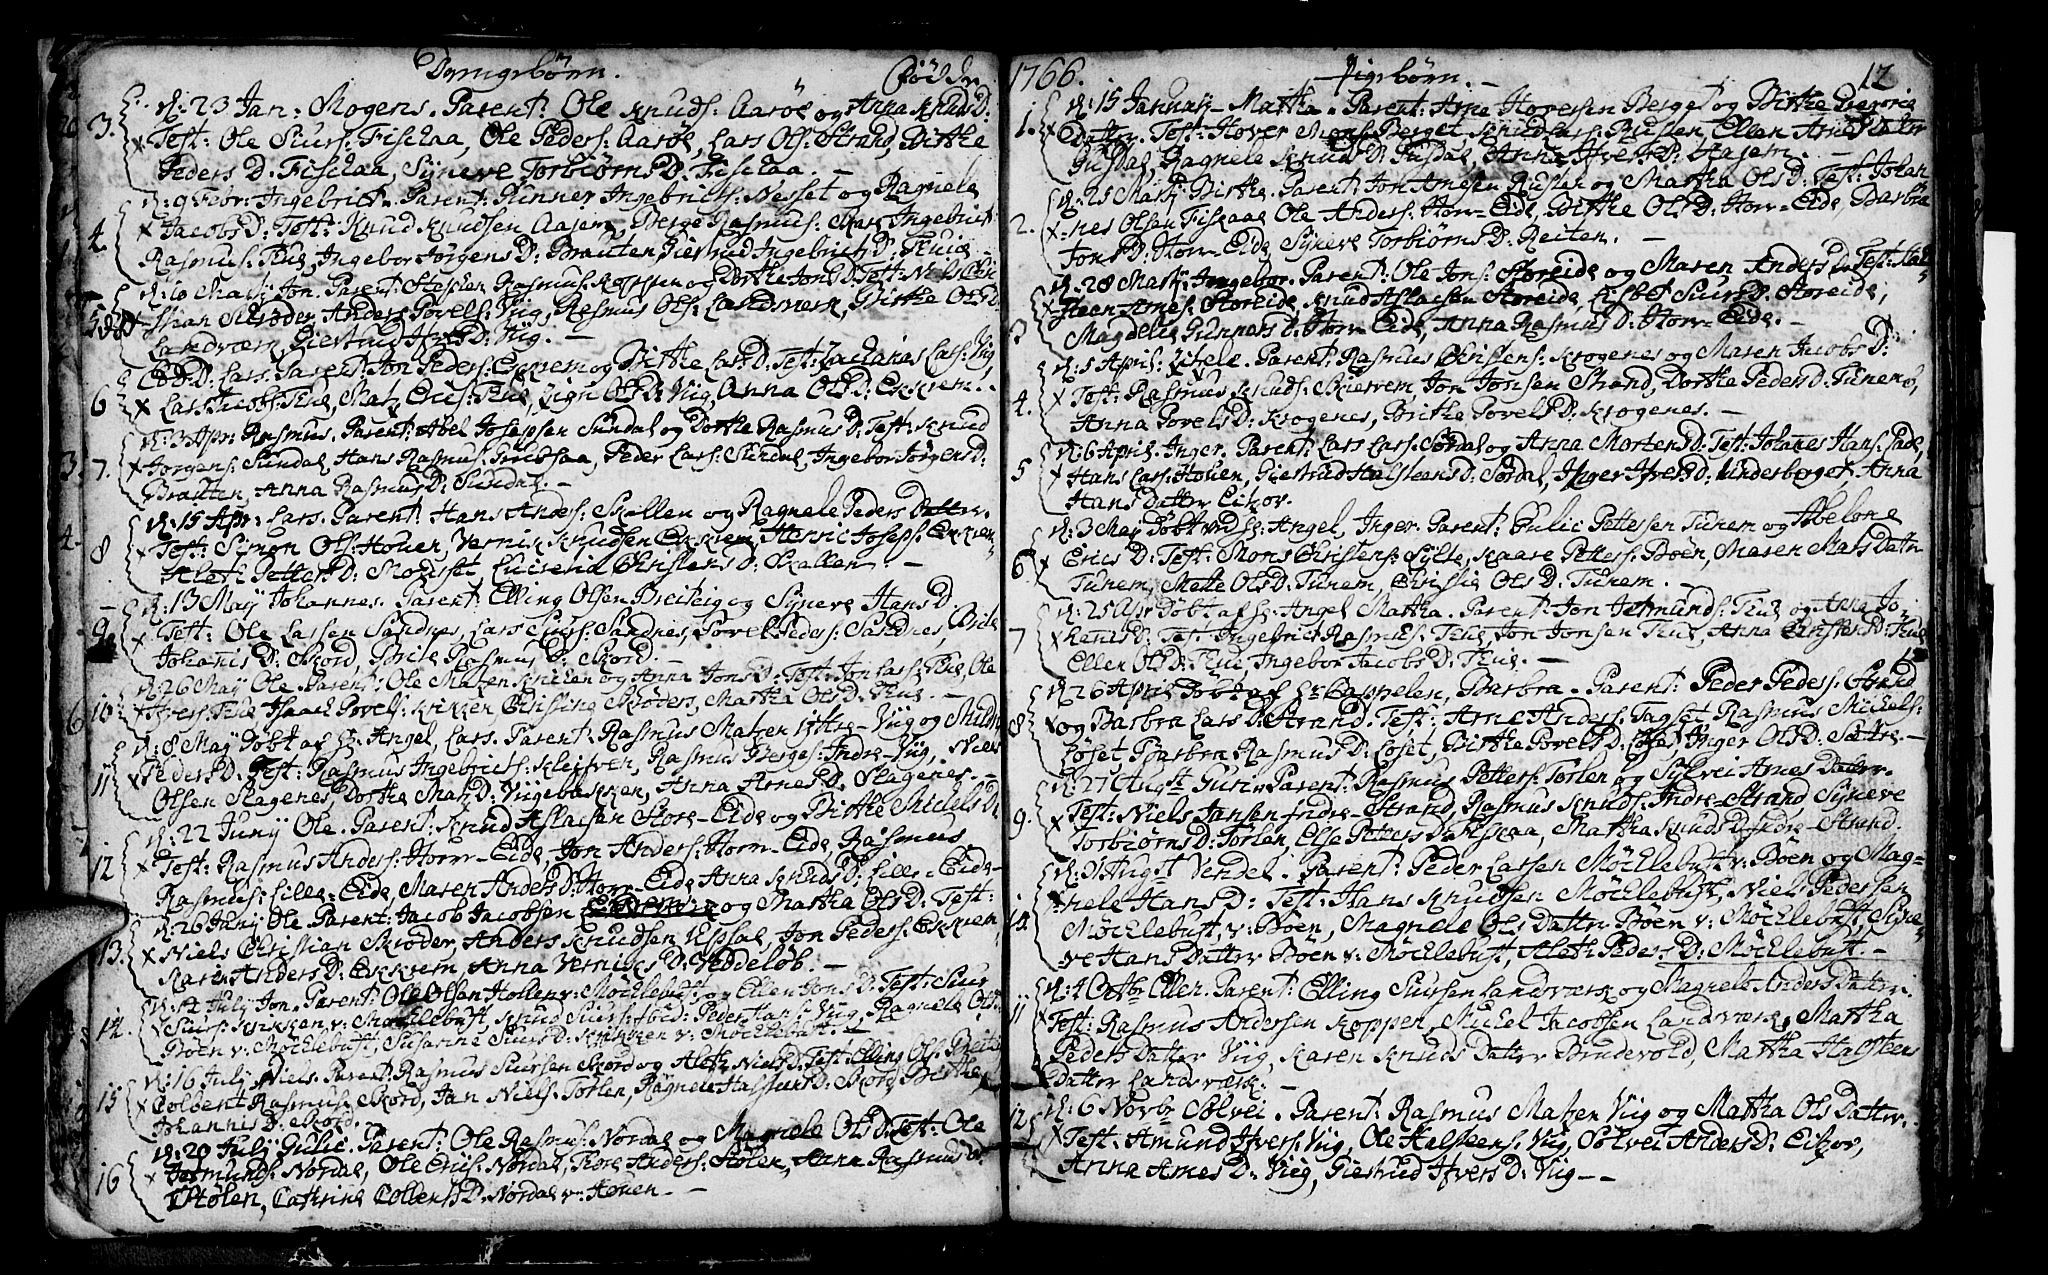 Drengebørn. Födde
3. d: 23 Jan: Mogens. Parent: Ole Knuds: Aaröe og Anna Knuds D:
Test: Ole Siurs: Fischaa, Ole Peders: Aaröe, Lars Ols: Strand, Birthe
Peders D: Fischaa, Syneve Torbiörns D: Fischaa. —
d: 9 Febr: Ingebrict. Parent: Gunner Ingebricts: Nesset og Ragnele
4. Jacobs D: Test: Knud Knudsen Aasen, Berge Rasmus: Ingebrict
Rasmus: Hue, Ingebor Jørgens D: Brauten, Giertrud Ingebricts D: Hue
d: 10 Jon. Parent: Rasmus: og Dorthe Jons D: Test: Niels Chri-
5. stian Skrøder, Anders Povels: Viig, Rasmus Ols: Landværk, Birthe Ols D:
Landværk, Giertrud Ifvers D: Viig. —
Lars. Parent: Jon Peders: Ekkrem og Birthe Lars D: Test: Zacharias Lars: Viig
6 Lars Jacobs: Hue, Mats Erics: Hue, Sigri Ols D: Viig, Anna Ols D: Ekkrem.
d: 3 Apr: Rasmus. Parent: Abel Josephsen Sundal og Dorthe Rasmus D: Test: Knud
7. Jörgens: Sundal, Hans Rasmus: , Peder Lars: Sundal, Ingebor Jörgens D:
Brauten, Anna Rasmus D: Sundal. —
d: 15 Apr: Lars. Parent: Hans Anders: Skallen og Ragnele Peders Datter.
8 Test: Simon Ols: Houen, Vernik Knudsen Ekkrem, Henric Joseph: Ekkrem
Aleth Petters D: Modsæt Christens D: Skallen —
d: 13 May Johannes. Parent: Elling Olsen Breiteig og Syneve Hans D
9 Test: Ole Larsen Sandnes, Lars Siurs: Sandnes, Povel Peders: Sandnes, Brite
Johanis D: Skord, Brite Rasmus D: Skord.
d: 26 May Ole. Parent: Ole Matzen og Anna Jons D: Test: Jon Lars: Hue, Ole
10. Ivers: Hue, Isaach Povels: Christine Skrøders, Martha Ols D: Hue. —
d: 8 May Döbt af Hr: Angel, Lars. Parent: Rasmus Matzen Yttre-Viig og Mildri
11 Peders D: Test: Rasmus Ingebricts: Kleifven, Rasmus Berges: Indre-Viig, Niels
Olsen Stagenes, Dorthe Matz D: Viigebakken, Anna Arnes D: Stagenes. —
d: 22 Juny Ole. Parent: Knud Aslacsen Store-Eide og Birthe Michels D:
12 Test: Rasmus Anders: Horv-Eide, Jon Anders: Horv-Eide, Rasmus
Rasmus: Lille-Eide, Maren Anders D: Horv-Eide, Anna Knuds D: Lille-Eide
d: 26 Juny Ole. Parent: Jacob Jacobsen og Martha Ols D: Test:
13. Niels Christian Skroder, Anders Knudsen Upsal, Jon Peders: Ekkrem
Karen Anders D: Ekkrem, Anna Vernikes D: Veddelöb. —
d: 12 July Jon. Parent: Ole Olsen Hollen v: Möcklebust og Ellen Jons D: Test: Siur
14. Siurs: v: Möcklebust, Knud Siurs: ibid: Peder Hans: Viig, Ragnele Ols D:
Böen v: Möcklebust, Susanne Siurs D: v: Möcklebust. —
d: 16 July Niels. Parent: Rasmus Siursen Skord og Aleth Niels D: Test: Elling Ols: Breite
15 Colbent Rasmus: Skord, Jan Niels: Torlen, Ragnele Hasmunds D: Skord, Birthe
Johannis D: Skord.
d: 20 July Gulic. Parent: Ole Rasmus: Nordal og Magnele Ols D: Test: Ole
16 Jetmunds: Nordal, Ole Erics: Nordal, Tore Anders: Stölen, Anna Rasmus D:
Stölen, Cathrine Colbens D: Nordal v: Houen. —
1766. Pigebörn. — 12
1. d: 15 January Martha. Parent: Arne Hoversen Berget og Birthe Gregorii
Datter. Test: Hover Mons: Berget, Knud Lars: Bussen, Ellen Arnes Datter
Gusdal, Ragnele Knuds D: Gusdal, Anna Ifvers D: Hagem. —
d: 25 Marty Birthe. Parent: Jon Arnesen Rusten og Martha Ols D: Test: Johan-
2. nes Olsen Fiscaae, Ole Anders: Horv-Eide, Birthe Ols D: Horv-Eide, Barbra
Jons D: Horv-Eide, Syneve Torbiörns D: Reiten. —
d: 28 Marty Ingebor. Parent: Ole Jons: Storeide og Maren Anders D: Test: Hal-
steen Arnes: Storeide, Knud Aslacsen Storeide, Lisbet Siurs D: Storeide,
3 Magdeli Gunnars D: Horv-Eide, Anna Rasmus D: Horv-Eide. —
d: 1 April: . Parent: Rasmus Christens: Krogenes og Maren Jacobs D:
4. Test: Rasmus Knuds: , Jon Jonsen Strand, Dorthe Peders D: Tunem,
Anna Povels D: Krogenes, Brithe Povels D: Krogenes. —
d: 6 April. Inger. Parent: Lars Lars: Sördal og Anna Mortens D: Test: Johanes Hans:
5 Hans Lars: Houen, Giertrud Halsteens D: Sördal, Inger Ifvers D: Underberget, Anna
Hans Datter Eikor.
d: 3 May Döbt ved Hr: Angel, Inger. Parent: Gulic Pettersen Tunem og Abelone
6 Erics D: Test: Mons Christens: Sylte, Kaare Petters: Böen, Maren Mats Datr
Tunem, Mette Ols D: Tunem, Christie Ols D: Tunem. —
d: 25 Apr Döbt af Hr: Angel Martha. Parent: Jon Jetmunds: Hue og Anne Jo-
7 Test: Ingebrict Rasmus: Hue, Jon Jonsen Hue, Anna Christens D: Hue
Ellen Ols D: Hue, Ingebor Jacobs D: Hue. —
d: 26 April Döbt af Hr Cappelen, Barbra. Parent: Peder Peders:
8 og Barbra Lars D: Strand. Test: Arne Anders: Tagset, Rasmus Michels:
Löset, Barbra Rasmus D: Löset, Birthe Povels D: Inger Ols D: Sætre. —
d: 27 Augst Guri. Parent: Rasmus Petters: Torlen og Sylvei Arnes Datter.
9. Test: Niels Jansen Indre-Strand, Rasmus Knuds: Indre-Strand, Syneve
Torbiörns D: Torlen, Else Petters D: Fiskaa, Martha Knuds D: Indre-Strand.
d: 31 Augst Vendel. Parent: Peder Larsen Möcklebust v: Böen og Mag-
10. nele Hans D: Test: Hans Knudsen Möcklebust, Niels Pedersen
Möcklebust v: Böen, Magnele Ols Datter Böen v: Möcklebust, Syne-
ve Hans Datter Böen v: Möcklebust, Aleth Peders D: Möcklebust. —
d: 4 Octb: Ellen. Parent: Elling Siursen Landværk og Magnele Anders Datter.
11 Test: Rasmus Andersen Koppen, Michel Jacobsen Landværk, Martha
Peders Datter Viig, Karen Knuds Datter Brudevold, Martha Halsteens
Datter Landværk. —
12. d: 6 Novbr Sölvei. Parent: Rasmus Matzen Viig og Martha Ols Datter.
Test: Amund Ifvers: Viig, Ole Halsteens: Viig, Sölvei Anders D: Eikor,
Anna Arnes D: Viig, Giertrud Ifvers D: Viig — —